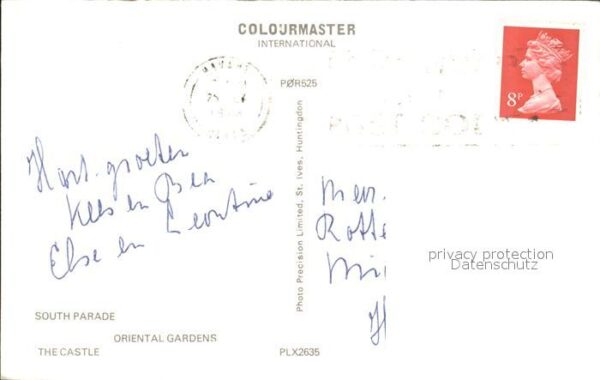 COLOURMASTER
INTERNATIONAL
PØR525
8P
Hart. groeten
Kees en Bea
Else en Leontine
Photo Precision Limited, St. Ives, Huntingdon
Mevr.
Rotte
privacy protection
Datenschutz
SOUTH PARADE
ORIENTAL GARDENS
THE CASTLE
PLX2635